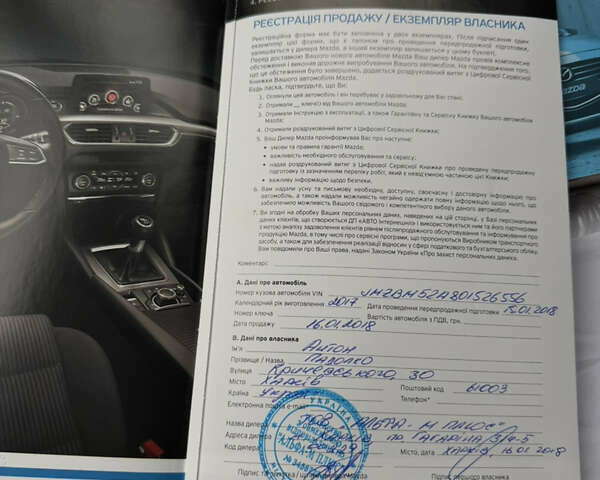 РЕЄСТРАЦІЯ ПРОДАЖУ / ЕКЗЕМПЛЯР ВЛАСНИКА
Реєстраційна форма має бути заповнена у двох екземплярах. Після підписання один
екземпляр цієї форми, що є талоном про проведення передпродажної підготовки,
залишається у дилера Mazda, а інший екземпляр залишається у цьому буклеті.
Перед доставкою Вашого нового автомобіля Mazda Ваш дилер Mazda провів комплексне
обстеження і виконав дорожнє випробування Вашого автомобіля. На підтвердження того,
що це обстеження було завершено, додається роздрукований витяг з Цифрової Сервісної
Книжки Вашого автомобіля Mazda.
Будь ласка, підтвердьте, що Ви:
1. Оглянули цей автомобіль і він перебуває у задовільному для Вас стані;
2. Отримали __ ключ(і) від Вашого автомобіля Mazda;
3. Отримали Інструкцію з експлуатації, а також Гарантійну та Сервісну Книжку Вашого автомобіля
Mazda;
4. Отримали роздрукований витяг з Цифрової Сервісної Книжки;
5. Ваш Дилер Mazda проінформував Вас про наступне:
• умови та правила гарантії Mazda;
• важливість необхідного обслуговування та сервісу;
• надав роздрукований витяг з Цифрової Сервісної Книжки про проведену передпродажну
підготовку (із зазначенням переліку робіт, який є невід'ємною частиною цієї Книжки;
• важливу інформацію щодо безпеки.
6. Вам надали усну та письмову необхідну, доступну, своєчасну і достовірну інформацію про
автомобіль, а також надали можливість негайно одержати повну інформацію щодо нього, що
забезпечило можливість Вашого свідомого і компетентного вибору даного автомобіля.
7. Ви згодні на обробку Ваших персональних даних, наведених на цій сторінці, у Базі персональних
даних клієнтів, що створюється ДП «АВТО Інтернешнл» і використовується ним та його партнерами
з метою аналізу задоволення клієнтів рівнем післяпродажного обслуговування та інформування про
продукцію Mazda, в тому числі про сервісні програми, що пропонуються Виробником транспортного
засобу, а також для забезпечення реалізації відносин у сфері податкового та бухгалтерського обліку.
Вам повідомили про Ваші права, надані Законом України «Про захист персональних даних».
Коментарі:
А. Дані про автомобіль
Номер кузова автомобіля VIN JMZBM52A801526556
Календарний рік виготовлення 2017 Дата проведення передпродажної підготовки 15.01.2018
Номер ключа Вартість автомобіля з ПДВ, грн.
Дата продажу 16.01.2018
В. Дані про власника
Ім'я Антон
Прізвище / Назва Паволко
Вулиця Кричевського, 30
Місто Харків Поштовий код 61003
Країна Україна Телефон*
Електронна пошта
Назва дилера ТОВ "АЛЬФА-М ПЛЮС"
Адреса дилера пр. Гагаріна
Код дилера Місто, дата Харків 16.01.2018
УКРАЇНА
"АЛЬФА-М ПЛЮС"